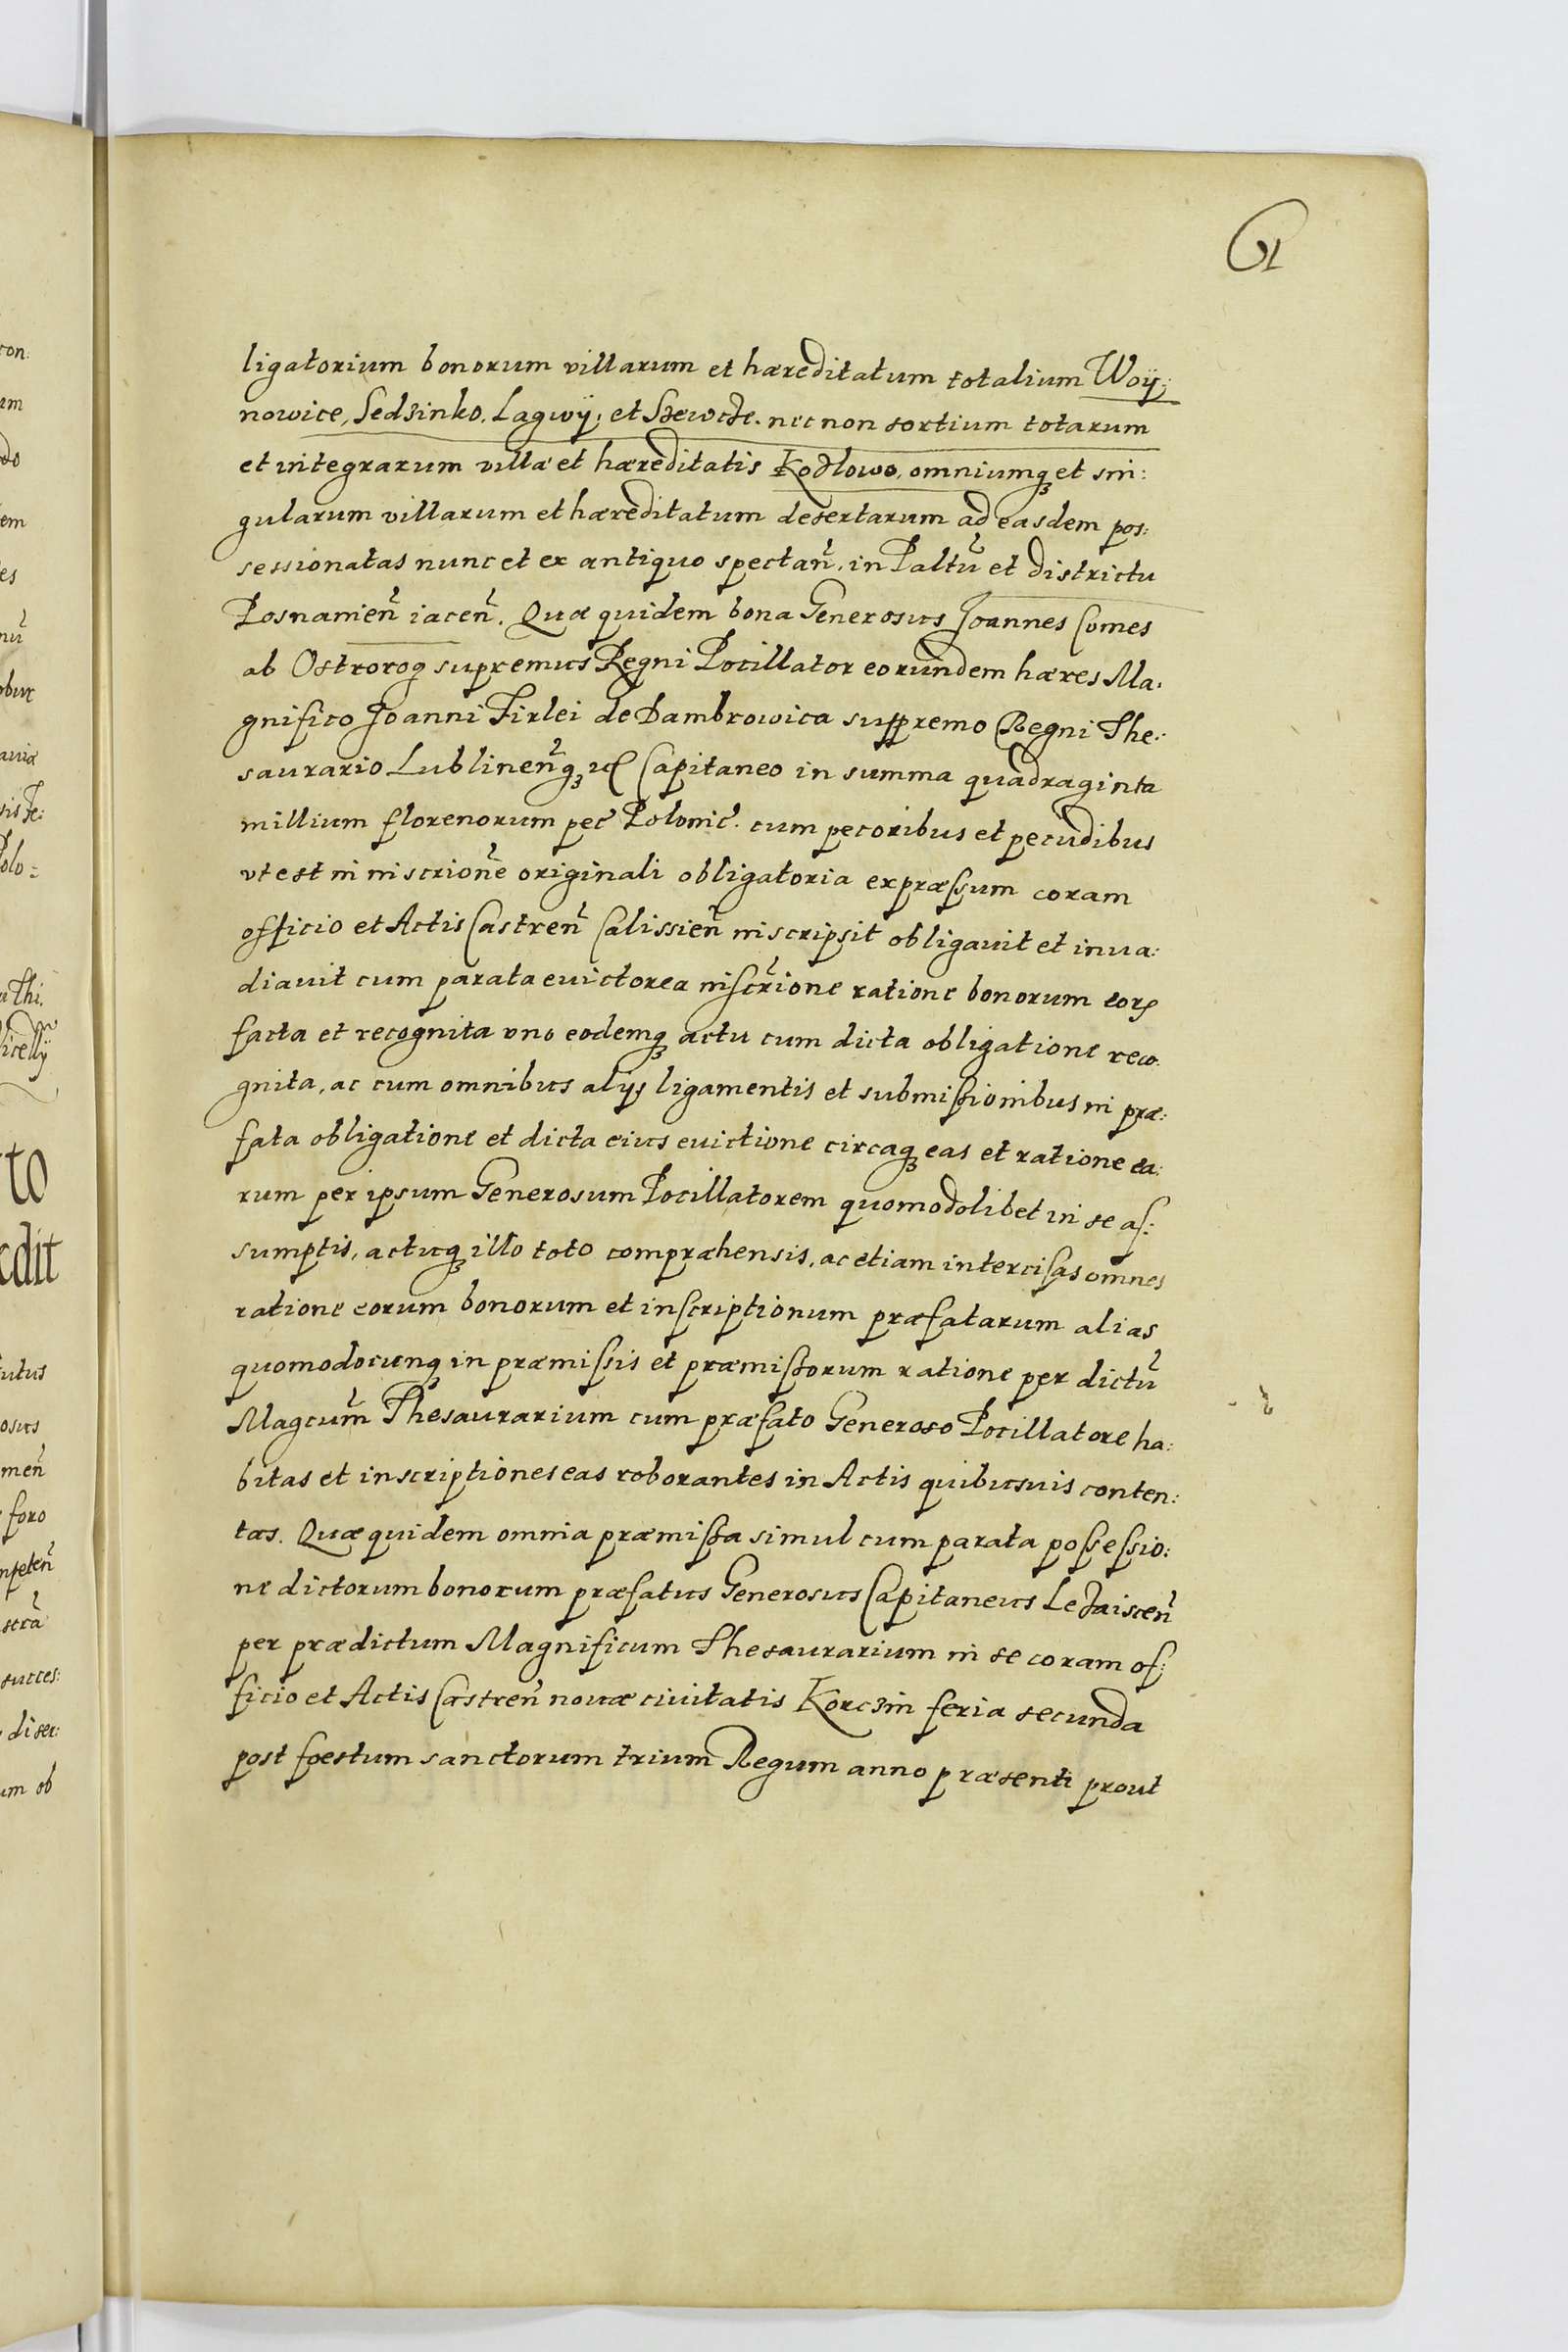 61
ligatorium bonorum villarum et hæreditatum totalium Woÿ:
nowice, Sedzinko, Lagwÿ, et Szewcze. nec non sortium totarum
et integrarum villæ et hæreditatis Kozlowo, omniumq3 et sin:
gularum villarum et hæreditatum desertarum ad easdem pos:
sessionatas nunc et ex antiquo spectan̄. in Paltū et districtu
Posnamien̄ iacen̄. Quæ quidem bona Generosus Joannes Comes
ab Ostrorog supremus Regni Pocillator eorundem hæres Ma:
gnifico Joanni Firlei de Dambrowica suppremo Regni The:
saurario Lublinen̄q3 Capitaneo in summa quadraginta
millium florenorum pec̄ Polonic̄. cum pecoribus et pecudibus
vt est in inscrione̅ originali obligatoria expræſsum coram
officio et Actis Castren̄ Calissien̄ inscripsit obligauit et inua:
diauit cum parata euictorea inſcr̄ione ratione bonorum eorꝝ
facta et recognita vno eodemq3 actu cum dicta obligatione reco:
gnita, ac cum omnibus alijs ligamentis et submiſsionibus in præ:
fata obligatione et dicta eius euictione circaq3 eas et ratione ea:
rum per ipsum Generosum Pocillatorem quomodolibet in se aſ:
sumptis, actuq3 illo toto compræhensis, ac etiam interciſas omnes
ratione eorum bonorum et inſcriptionum præfatarum alias
quomodocunq3 in præmiſsis et præmiſsorum ratione per dictū
Magcum̄ Thesaurarium cum præfato Generoso Pocillatore ha:
bitas et inscriptiones eas roborantes in Actis quibusuis conten:
tas. Quæ quidem omnia præmiſsa simul cum parata poſseſsio:
ne dictorum bonorum præfatus Generosus Capitaneus Lezaiscen̄
per prædictum Magnificum Thesaurarium in se coram of:
ficio et Actis Castren̄ nouæ ciuitatis Korczin feria secunda
post foestum sanctorum trium Regum anno præsenti prout